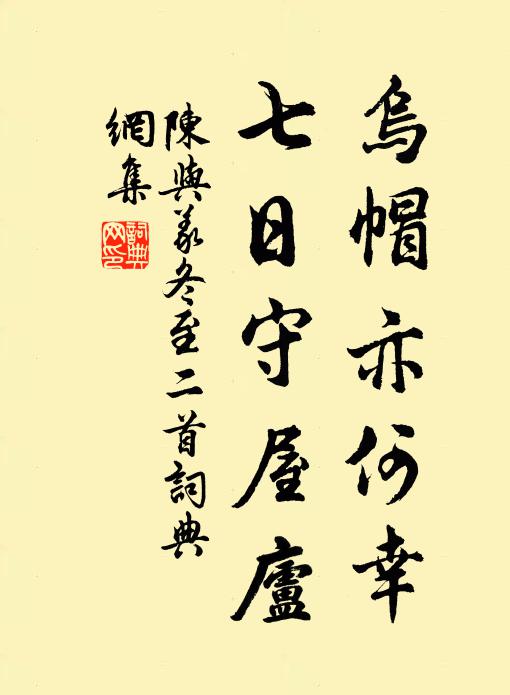 烏帽亦何幸
七日守屋廬
陳與義冬至二首詞典
網集
詞典
网印